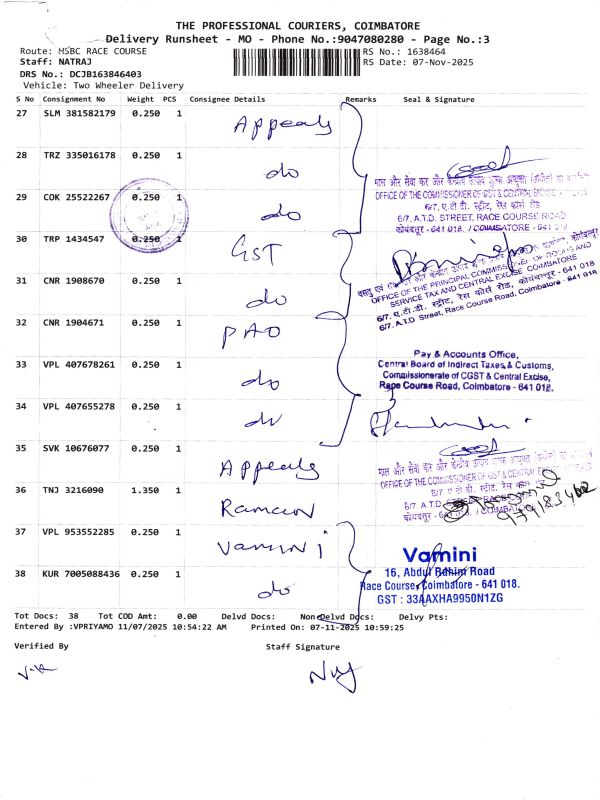 THE PROFESSIONAL COURIERS, COIMBATORE
Delivery Runsheet - MO - Phone No.:9047080280 - Page No.:3
Route: HSBC RACE COURSE
RS No.: 1638464
Staff: NATRAJ
RS Date: 07-Nov-2025
DRS No.: DCJB163846403
Vehicle: Two Wheeler Delivery
S No Consignment No Weight PCS Consignee Details Remarks Seal & Signature
27 SLM 381582179 0.250 1 Appeals
28 TRZ 335016178 0.250 1 do
29 COK 25522267 0.250 1 do
OFFICE OF THE COMMISSIONER OF GST & CENTRAL
6/7, ए.टी.डी. स्ट्रीट, रेस कोर्स रोड
6/7, A.T.D. STREET, RACE COURSE ROAD
कोयंबत्तूर - 641 018. / COIMBATORE - 641 018.
30 TRP 1434547 0.250 1 GST
31 CNR 1908670 0.250 1 do
OFFICE OF THE PRINCIPAL COMMISSIONER OF GOODS AND
SERVICE TAX AND CENTRAL EXCISE COIMBATORE
6/7, ए.टी.डी. स्ट्रीट, रेस कोर्स रोड, कोयंबत्तूर - 641 018
6/7, A.T.D. Street, Race Course Road, Coimbatore - 641 018.
32 CNR 1904671 0.250 1 PAO
33 VPL 407678261 0.250 1 do
Pay & Accounts Office,
Central Board of Indirect Taxes & Customs,
Commissionerate of CGST & Central Excise,
Race Course Road, Coimbatore - 641 018.
34 VPL 407655278 0.250 1 do
35 SVK 10676077 0.250 1 Appeals
OFFICE OF THE COMMISSIONER OF GST & CENTRAL
36 TNJ 3216090 1.350 1 Raman
37 VPL 953552285 0.250 1 Vamini
38 KUR 7005088436 0.250 1 do
Vamini
16, Abdul Rahim Road
Race Course, Coimbatore - 641 018.
GST : 33AAXHA9950N1ZG
Tot Docs: 38 Tot COD Amt: 0.00 Delvd Docs: Non Delvd Docs: Delvy Pts:
Entered By :VPRIYAMO 11/07/2025 10:54:22 AM Printed On: 07-11-2025 10:59:25
Verified By Staff Signature